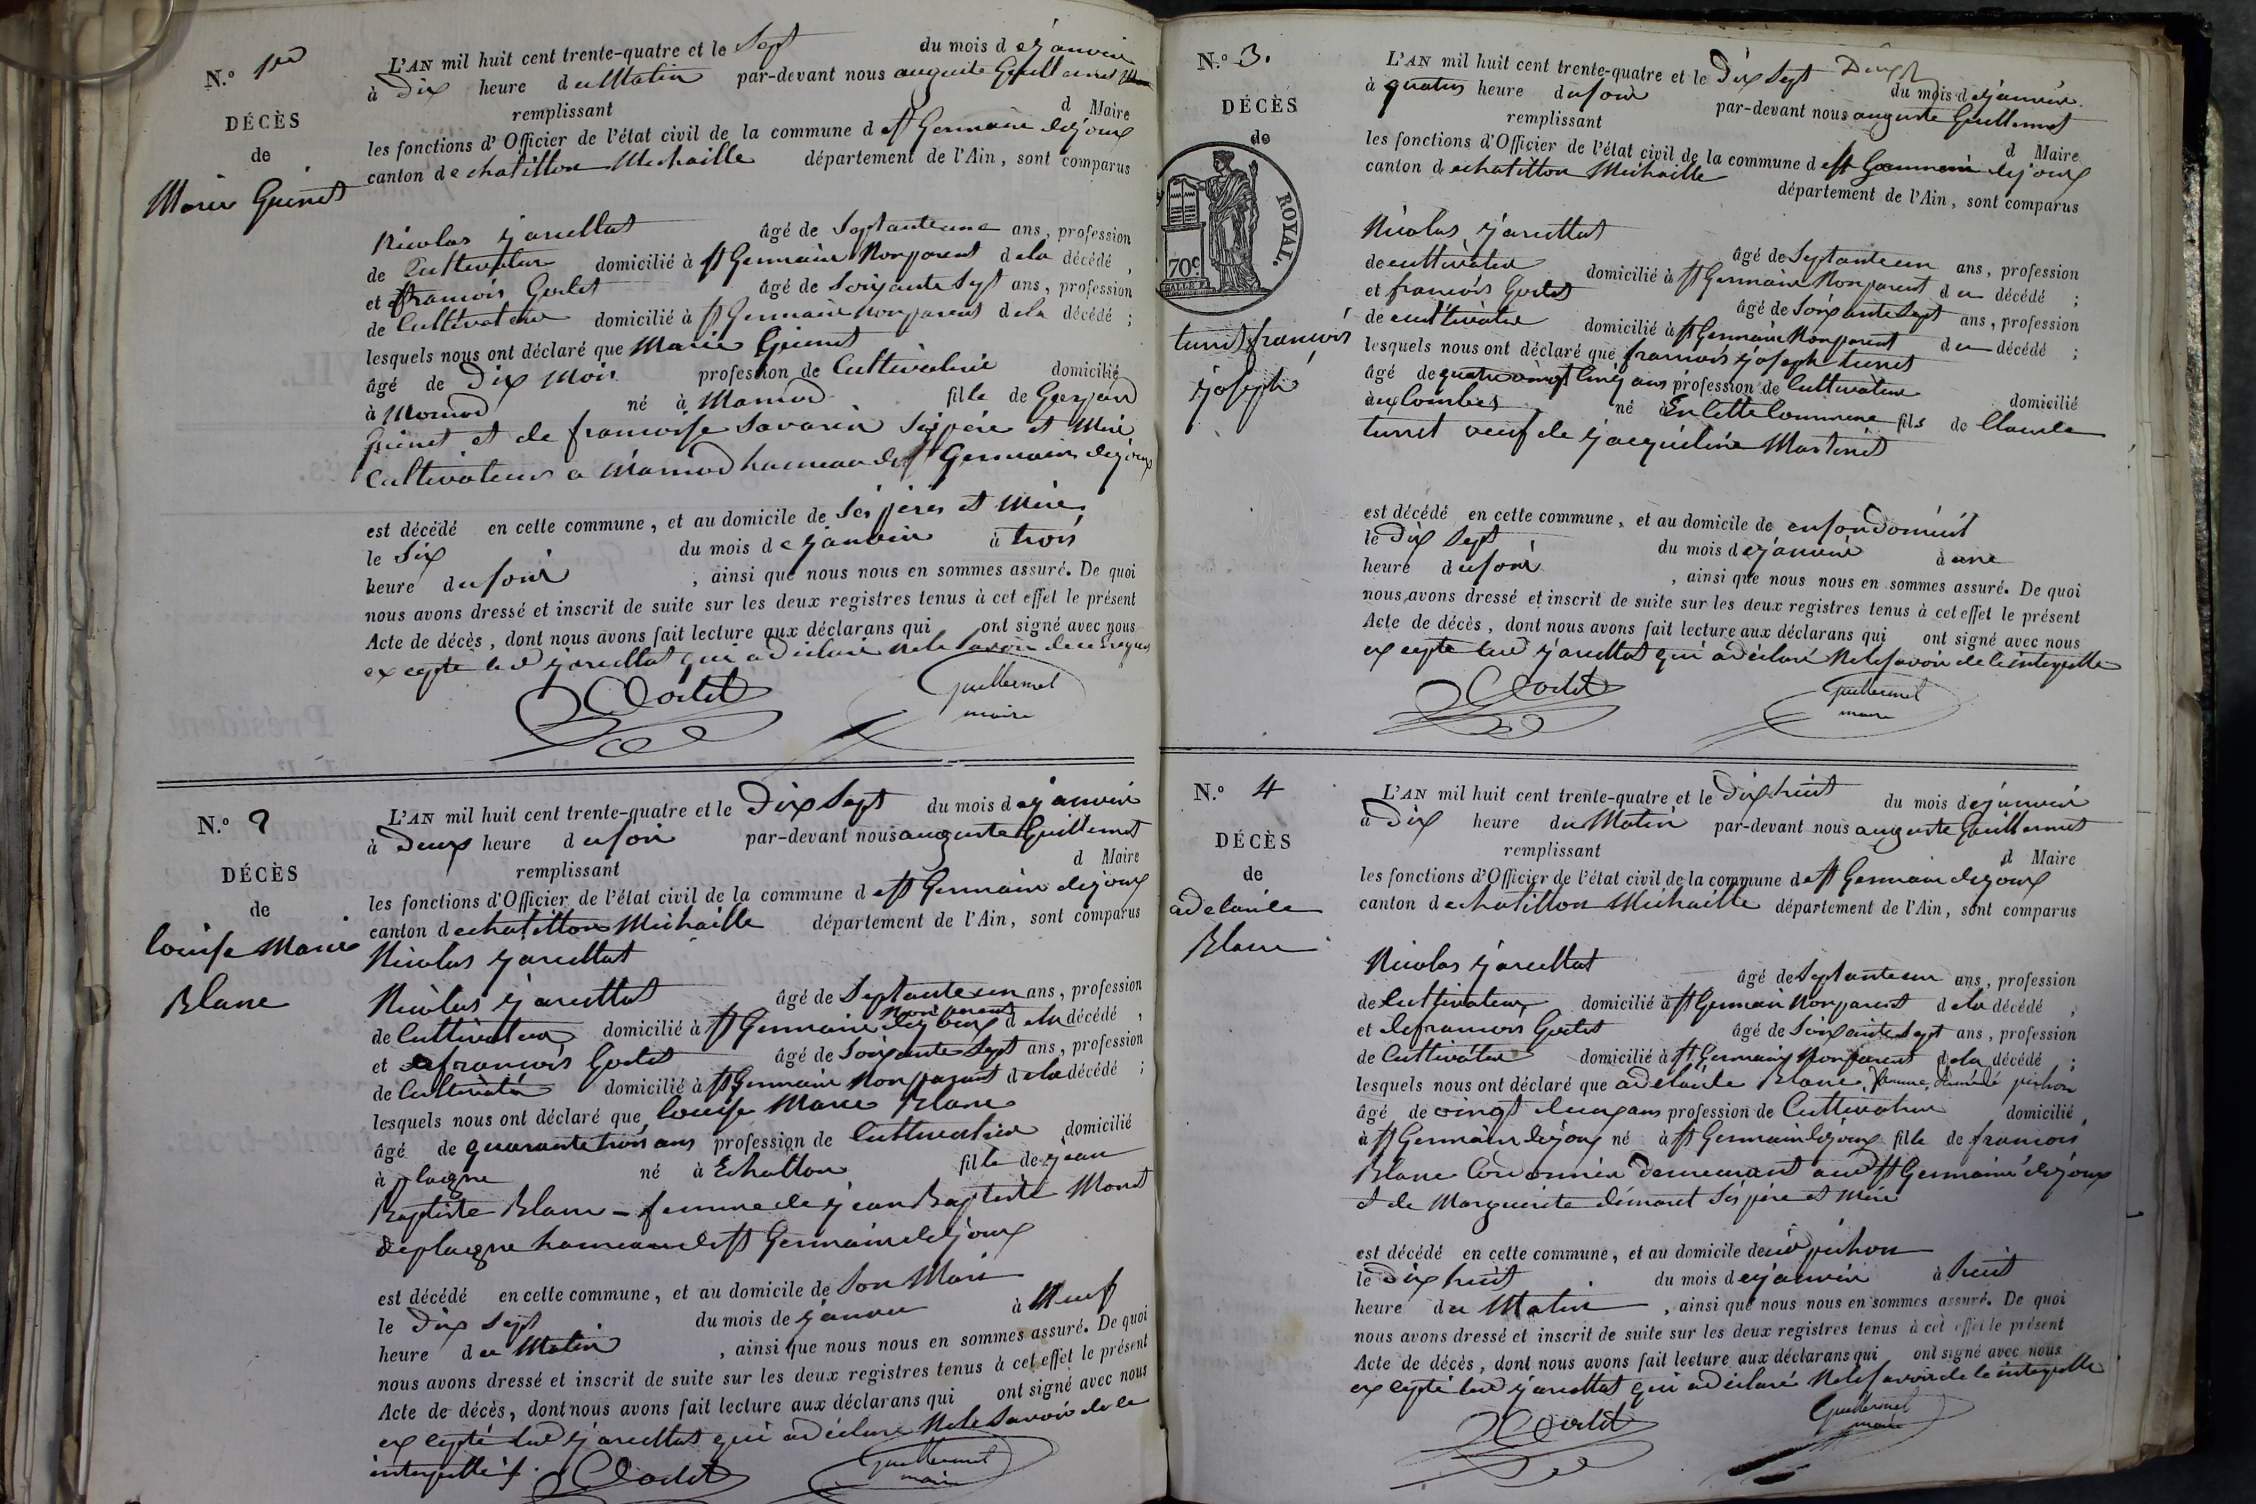 N.o 1er
DÉCÈS
de
Marie Guinet
L'AN mil huit cent trente-quatre et le Sept du mois de janvier
à Dix heure du Matin par-devant nous auguste Guillermet
remplissant d Maire
les fonctions d'Officier de l'état civil de la commune de st Germain dejoux
canton de chatillon Michaille département de l'Ain, sont comparus
Nicolas jarcellat âgé de Septanteune ans, profession
de Cultivateur domicilié à st Germain Nonparent de la décédé,
et francois Godet âgé de Soixante Sept ans, profession
de Cultivateur domicilié à st Germain Nonparent de la décédé ;
lesquels nous ont déclaré que Marie Guinet
âgé de Dix Mois profession de Cultivatrice domicilié
à Marnod né à Marnod fille de
Guinet et de francoise Savarin Ses père et Mère
Cultivateurs a Marnod hameau de st Germain dejoux
est décédé en cette commune, et au domicile de Ses pères et Mère
le Six du mois de janvier à trois
heure du soir , ainsi que nous nous en sommes assuré. De quoi
nous avons dressé et inscrit de suite sur les deux registres tenus à cet effet le présent
Acte de décès, dont nous avons fait lecture aux déclarans qui ont signé avec nous
excepte led jarcellat qui a déclaré ne le savoir de ce requis
Godet
Guillermet
maire
N.o 2
DÉCÈS
de
louise Marie
Blanc
L'AN mil huit cent trente-quatre et le Dix Sept du mois de janvier
à Deux heure du soir par-devant nous auguste Guillermet
remplissant d Maire
les fonctions d'Officier de l'état civil de la commune de st Germain dejoux
canton de chatillon Michaille département de l'Ain, sont comparus
Nicolas jarcellat
Nicolas jarcellat âgé de Septanteun ans, profession
de Cultivateur domicilié à st Germain dejoux Non parent de la décédé,
et de francois Godet âgé de Soixante Sept ans, profession
de Cultivateur domicilié à st Germain Non parent de la décédé ;
lesquels nous ont déclaré que louise Marie Blanc
âgé de quarante trois ans profession de Cultivatrice domicilié
à plagne né à Echallon fille de jean
Baptiste Blanc – femme de jean Baptiste Monet
de plagne hameau de st Germain de joux
est décédé en cette commune, et au domicile de Son Mari
le Dix Sept du mois de janvier à Neuf
heure du Matin , ainsi que nous nous en sommes assuré. De quoi
nous avons dressé et inscrit de suite sur les deux registres tenus à cet effet le présent
Acte de décès, dont nous avons fait lecture aux déclarans qui ont signé avec nous
excepté led jarcellat qui a déclaré Ne le Savoir de ce
interpellé
Godet
Guillermet
maire
N.o 3.
DÉCÈS
de
ROYAL.
70c
turret francois
joseph
L'AN mil huit cent trente-quatre et le Dix Sept du mois de janvier
à quatre heure du soir par-devant nous auguste Guillermet
remplissant d Maire
les fonctions d'Officier de l'état civil de la commune de st Germain dejoux
canton de chatillon Michaille département de l'Ain, sont comparus
Nicolas jarcellat âgé de Septanteun ans, profession
de cultivateur domicilié à st Germain Nonparent du décédé ;
et francois Godet âgé de Soixante Sept ans, profession
de cultivateur domicilié à st Germain Nonparent du décédé ;
lesquels nous ont déclaré que francois joseph turret
âgé de quatre vingt Cinq ans profession de Cultivateur domicilié
aux Combes né à En Cette Commune fils de Claude
turret veuf de jacqueline Martinet
est décédé en cette commune, et au domicile de en son domicil
le Dix Sept du mois de janvier à une
heure du soir , ainsi que nous nous en sommes assuré. De quoi
nous avons dressé et inscrit de suite sur les deux registres tenus à cet effet le présent
Acte de décès, dont nous avons fait lecture aux déclarans qui ont signé avec nous
excepte led jarcellat qui a déclaré Ne le savoir de ce interpellé
Godet
Guillermet
maire
N.o 4
DÉCÈS
de
adelaide
Blanc
L'AN mil huit cent trente-quatre et le Dix huit du mois de janvier
à Dix heure du Matin par-devant nous auguste Guillermet
remplissant d Maire
les fonctions d'Officier de l'état civil de la commune de st Germain dejoux
canton de chatillon Michaille département de l'Ain, sont comparus
Nicolas jarcellat âgé de Septanteun ans, profession
de Cultivateur domicilié à st Germain Nonparent de la décédé,
et de francois Godet âgé de Soixante Sept ans, profession
de Cultivateur domicilié à st Germain Nonparent de la décédé ;
lesquels nous ont déclaré que adelaide Blanc, femme pichon
âgé de vingt deux ans profession de Cultivatrice domicilié
à st Germain dejoux né à st Germain dejoux fille de francois
Blanc Cordonnier demeurant aud st Germain dejoux
et de Marguerite Ses père et Mère
est décédé en cette commune, et au domicile de pichon
le Dix huit du mois de janvier à huit
heure du Matin , ainsi que nous nous en sommes assuré. De quoi
nous avons dressé et inscrit de suite sur les deux registres tenus à cet effet le présent
Acte de décès, dont nous avons fait lecture aux déclarans qui ont signé avec nous
excepté led jarcellat qui a déclaré Ne le savoir de ce interpellé
Godet
Guillermet
maire